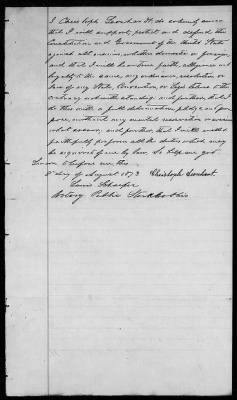 I Christoph Leonhart do solemnly swear
that I will support, protect and defend the
Constitution and Government of the United States
against all enemies, whether domestic or foreign
and that I will bear true faith, allegiance and
loyalty to the same, any ordinance, resolution or
law of any State, Convention, or Legislature to the
contrary notwithstanding, and further, that I
do this with a full determination, pledge and pur
pose, without any mental reservation or evasion
what soever, and further, that I will well &
faithfully perform all the duties which may
be required of me by law. So help me god
Sworn to before me this
day of August 1873 Christoph Leonhart.
Louis Schaefer
Notary Public Stark Co Ohio